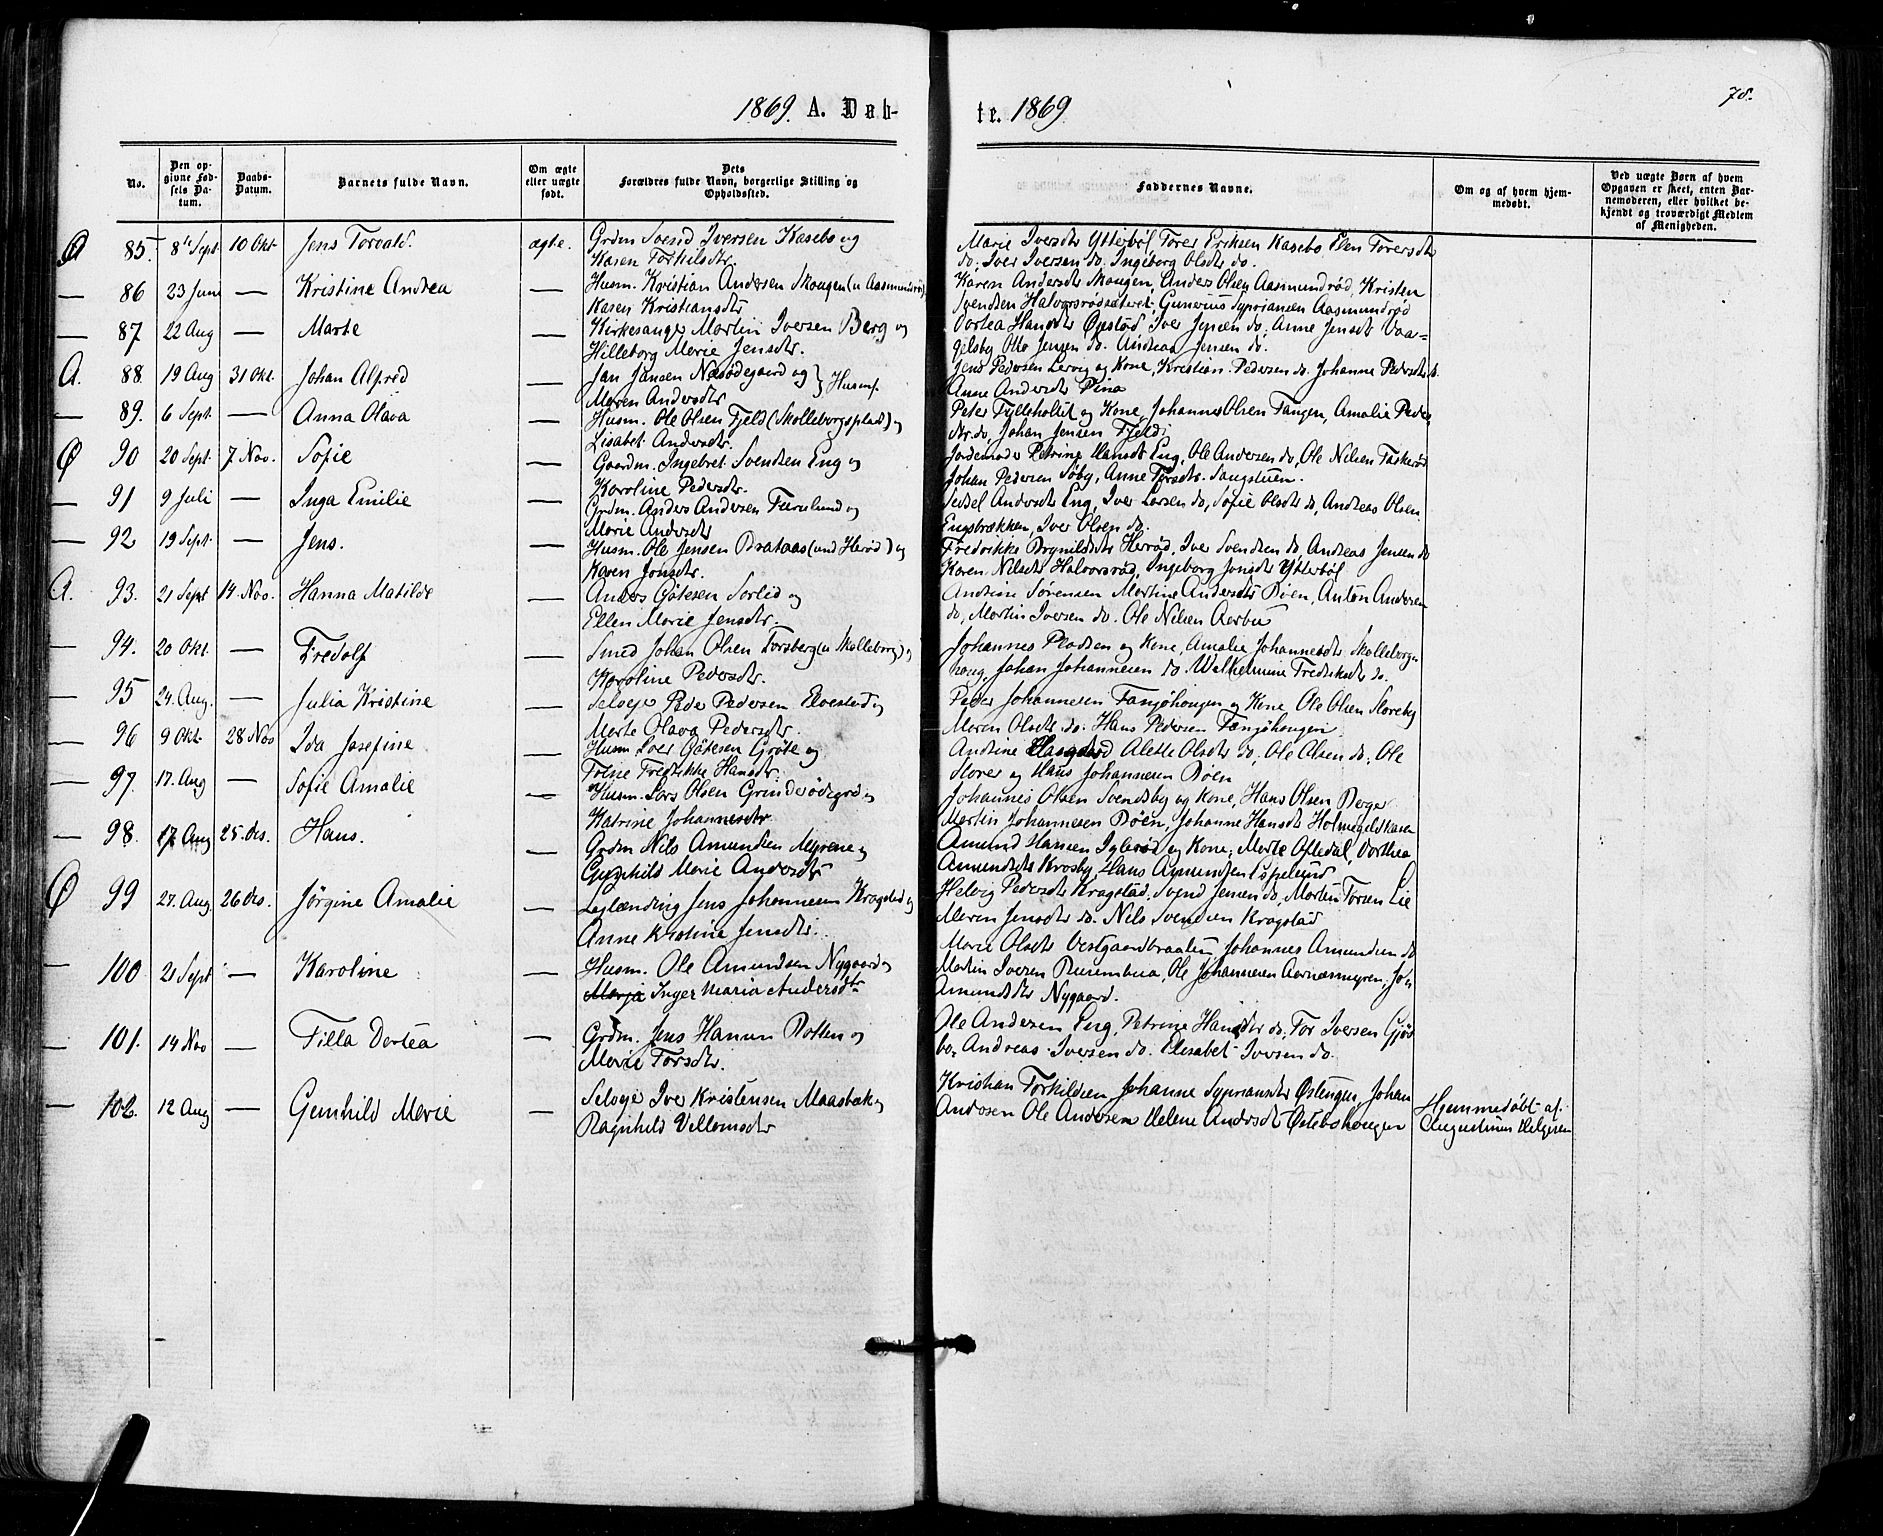 1869. A. Døb-
te. 1869
78.
No.
Den op-
givne Fød-
sels Da-
tum.
Daabs-
Datum.
Barnets fulde Navn.
Om ægte
eller uægte
født.
Dets
Forældres fulde Navn, borgerlige Stilling og
Opholdssted.
Faddernes Navne.
Om og af hvem hjem-
medøbt.
Ved uægte Børn af hvem
Opgaven er skeet, enten Bar-
nemoderen, eller hvilket be-
kjendt og troværdigt Medlem
af Menigheden.
Ø 85. 8de Sept 10 Okt Jens Torvald. ægte. Grdm Svend Iversen Kasebo og
Karen Torkilsdtr.
Marie Iversdtr Ytterbøl Torer Eriksen Kasebo Elen Torersdtr
do, Iver Iversen do. Ingeborg Olsdtr do.
— 86 23 Juni — Kristine Andrea — Husm. Kristian Andersen Skougen (u Aasmundrød)
Karen Kristiansdtr
Karen Andersdtr Skougen, Anders Olsen Aasmundrød, Kristen
Svendsen Halvorsrødsæteret, Gunerius Syvriansen Aasmundrød
— 87 22 Aug — Marte — Kirkesanger Martin Iversen Berg og
Hilleborg Marie Jensdtr.
Dortea Hansdtr Opstød, Iver Jensen do, Anne Jensdtr Vaa-
gelsby Otto Jensen do. Andreas Jensen do.
A. 88. 19 Aug 31 Okt. Johan Alfred — Jan Jansen Næsødegaard og } Husmf.
Maren Andersdtr
Jens Pedersen Lervig og Kone, Kristian Pedersen do. Johanne Pedersdtr do.
Anne Andersdtr Pina
— 89. 6 Sept. — Anna Olava — Husm. Ole Olsen Fjeld (Skolleborgsplads) og
Lisabet Andersdtr.
Peter Fylleholdt og Kone, Johannes Olsen Tangen, Amalie Peders
dtr. do, Johan Jensen Fjeld
Ø 90 20 Sept 7. Nov. Sofie — Gaardm. Ingebret Svendsen Eng og
Karoline Pedersdtr.
Jordemoder Petrine Hansdtr Eng, Ole Andersen do, Ole Nilsen Taskerød
Johan Pedersen Søby, Anne Torsdtr. Sangstuen.
— 91 9 Juli — Inga Emilie — Grdm. Anders Andersen Furulund og
Marie Andersdtr
Sidsel Andersdtr Eng, Iver Larsen do, Sofie Olsdtr do, Andreas Olsen
Engsbrækken, Iver Olsen do.
— 92 19 Sept. — Jens. — Husm. Ole Jensen Brataas (und Herød) og
Karen Jonsdtr.
Fredrikke Brynildsdtr Herød, Iver Svendsen do, Andreas Jensen do
Karen Nilsdtr Halvorsrød, Ingeborg Jonsdtr Ytterbøl
A. 93. 21 Sept 14. Nov. Hanna Matilde — Anders Gøtesen Sorlid og
Ellen Marie Jensdtr.
Andrine Sørensen Martine Andersdtr Bøen, Anton Andersen
do, Martin Iversen do. Ole Nilsen Aerbu
— 94. 20 Okt. — Fredolf — Smed Johan Olsen Forsberg (u Skolleborg) og
Karoline Pedersdtr.
Johannes Pladsen og Kone, Amalie Johannesdtr Skolleborg
houg, Johan Johannesen do. Wilhelmine Fredriksdtr do.
— 95 24. Aug. — Julia Kristine — Selveje Peder Pedersen Elvestad og
Marte Olava Pedersdtr.
Peder Johannesen Fanjøhougen og Kone, Ole Olsen Storeby
Maren Olsdtr do. Hans Pedersen Fanjøhougen
— 96 9 Okt. 28 Nov Ida Josefine — Husm Iver Gøtesen Grøte og
Trine Fredrikke Hansdtr.
Andrine Haagaard Alette Olsdtr do, Ole Olsen do, Ole
Horer og Hans Johannesen Bøen
— 97. 17. Aug — Sofie Amalie — Husm. Lars Olsen Grinderødegrd og
Katrine Johannesdtr
Johannes Olsen Svendsby og Kone, Hans Olsen Berger
Martin Johannesen Bøen, Johanne Hansdtr Holmegildkasen
— 98. 17 Aug 25. des. Hans. — Grdm Nils Amundsen Myrene og
Gunhild Marie Andersdtr
Amund Hansen Iglerød og Kone, Marte Oftedal, Dorthea
Amundsdtr Krosby, Hans Amundsen Espelund
Ø 99 27. Aug. 26 des. Jørgine Amalie — Leglænding Jens Johannesen Kragstad og
Anne Kristine Jensdtr.
Helvig Pedersdtr Kragstad, Svend Jensen do, Martin Torsen Lie
Maren Jensdtr do. Nils Svendsen Kragstad
— 100 21 Sept — Karoline — Husm. Ole Amundsen Nygaard og
Inger Maria Andersdtr
Marie Olsdtr Vestgaardbraaten, Johannes Amundsen do
Martin Iversen Rusenbua, Ole Johannesen Aarnæsmyren, Joh
Amundsdtr Nygaard.
— 101. 14 Nov — Tilla Dortea — Grdm. Jens Hansen Botten og
Marie Torsdtr.
Ole Andersen Eng, Petrine Hansdtr do, Tor Iversen Gjøs
bo, Andreas Iversen do. Elisabet Iversen do.
— 102. 12 Aug — Gunhild Marie — Selveje Iver Kristensen Maasbæk og
Ragnhild Villemsdtr
Kristian Torkildsen Johanne Syvriansdtr Østengen, Johan
Andersen Ole Andersen Helene Andersdtr Østebøhougen
Hjemmedøbt af
Augustinus Helgesen